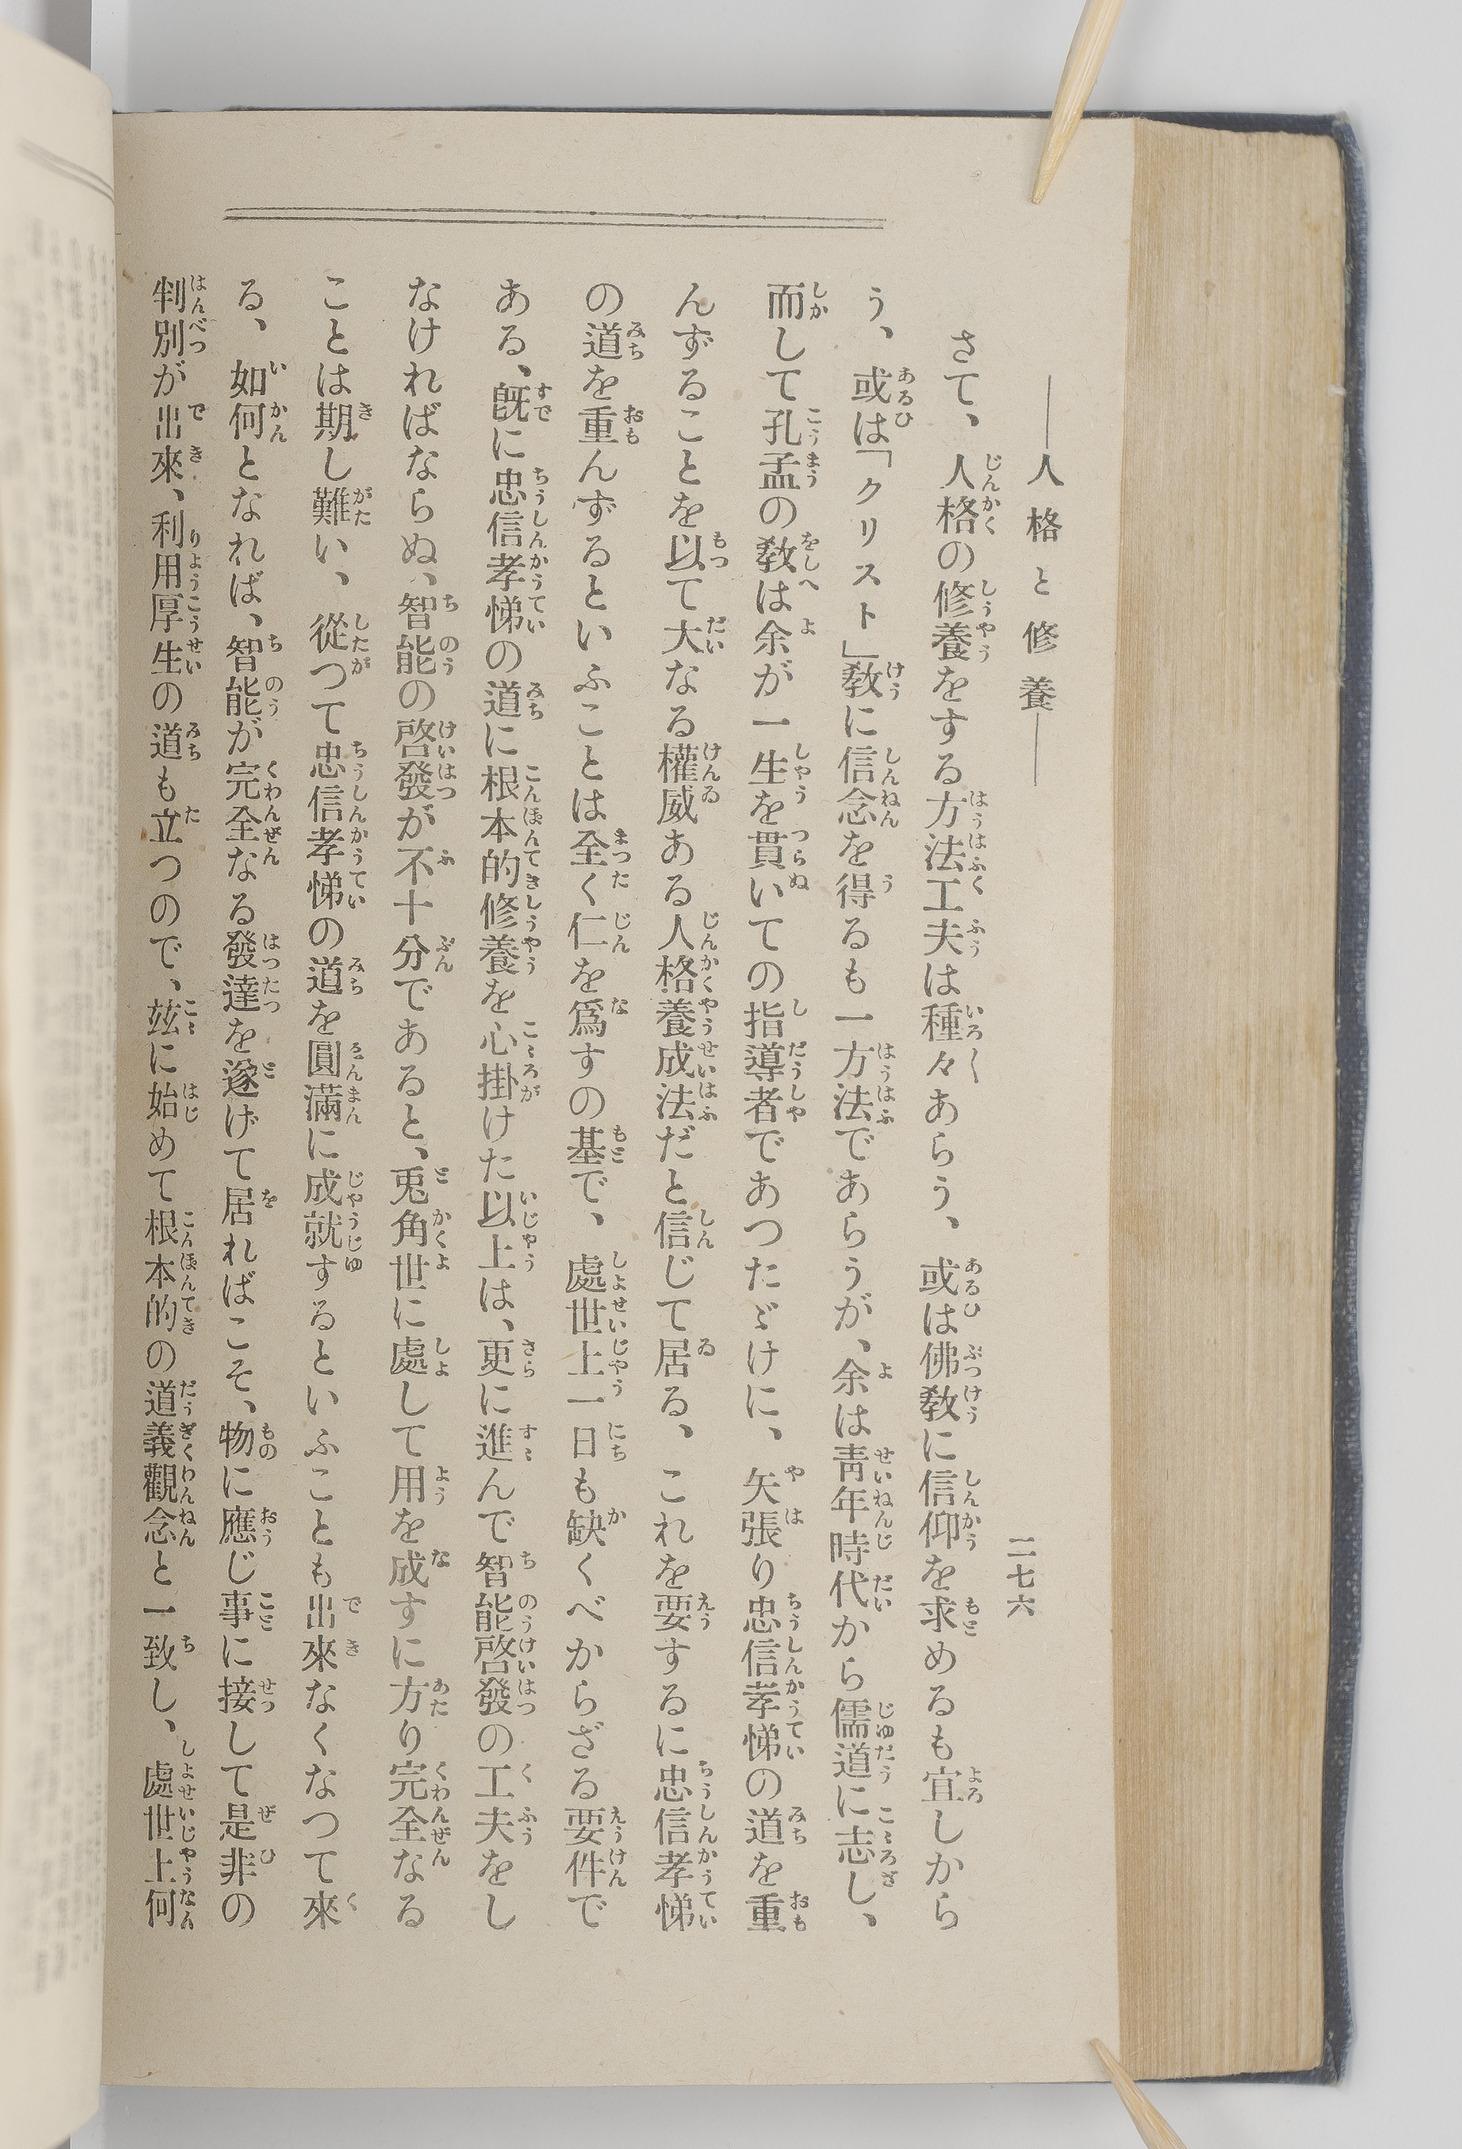 ――人格と修養――
二七六
さて、人格の修養をする方法工夫は種々あらう、或は佛教に信仰を求めるも宜しから
う、或は「クリスト」教に信念を得るも一方法であらうが、余は靑年時代から儒道に志し、
而して孔孟の教は余が一生を貫いての指導者であつたゞけに、矢張り忠信孝悌の道を重
んずることを以て大なる權威ある人格養成法だと信じて居る、これを要するに忠信孝悌
の道を重んずるといふことは全く仁を爲すの基で、處世上一日も缺くべからざる要件で
ある、既に忠信孝悌の道に根本的修養を心掛けた以上は、更に進んで智能啓發の工夫をし
なければならぬ、智能の啓發が不十分であると、兎角世に處して用を成すに方り完全なる
ことは期し難い、從つて忠信孝悌の道を圓滿に成就するといふことも出來なくなつて來
る、如何となれば、智能が完全なる發達を遂げて居ればこそ、物に應じ事に接して是非の
判別が出來、利用厚生の道も立つので、玆に始めて根本的の道義觀念と一致し、處世上何